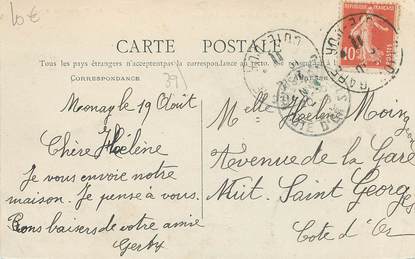 10€
CARTE POSTALE
Tous les pays étrangers n'acceptent pas la correspondance au recto.
CORRESPONDANCE
39
10
Mesnay le 19 Août
Chère Hélène
Je vous envoie notre
maison. Je pense à vous.
Bons baisers de votre amie
Melle Hélène
Avenue de la Gare
Nuit. Saint Georges
Cote d'Or